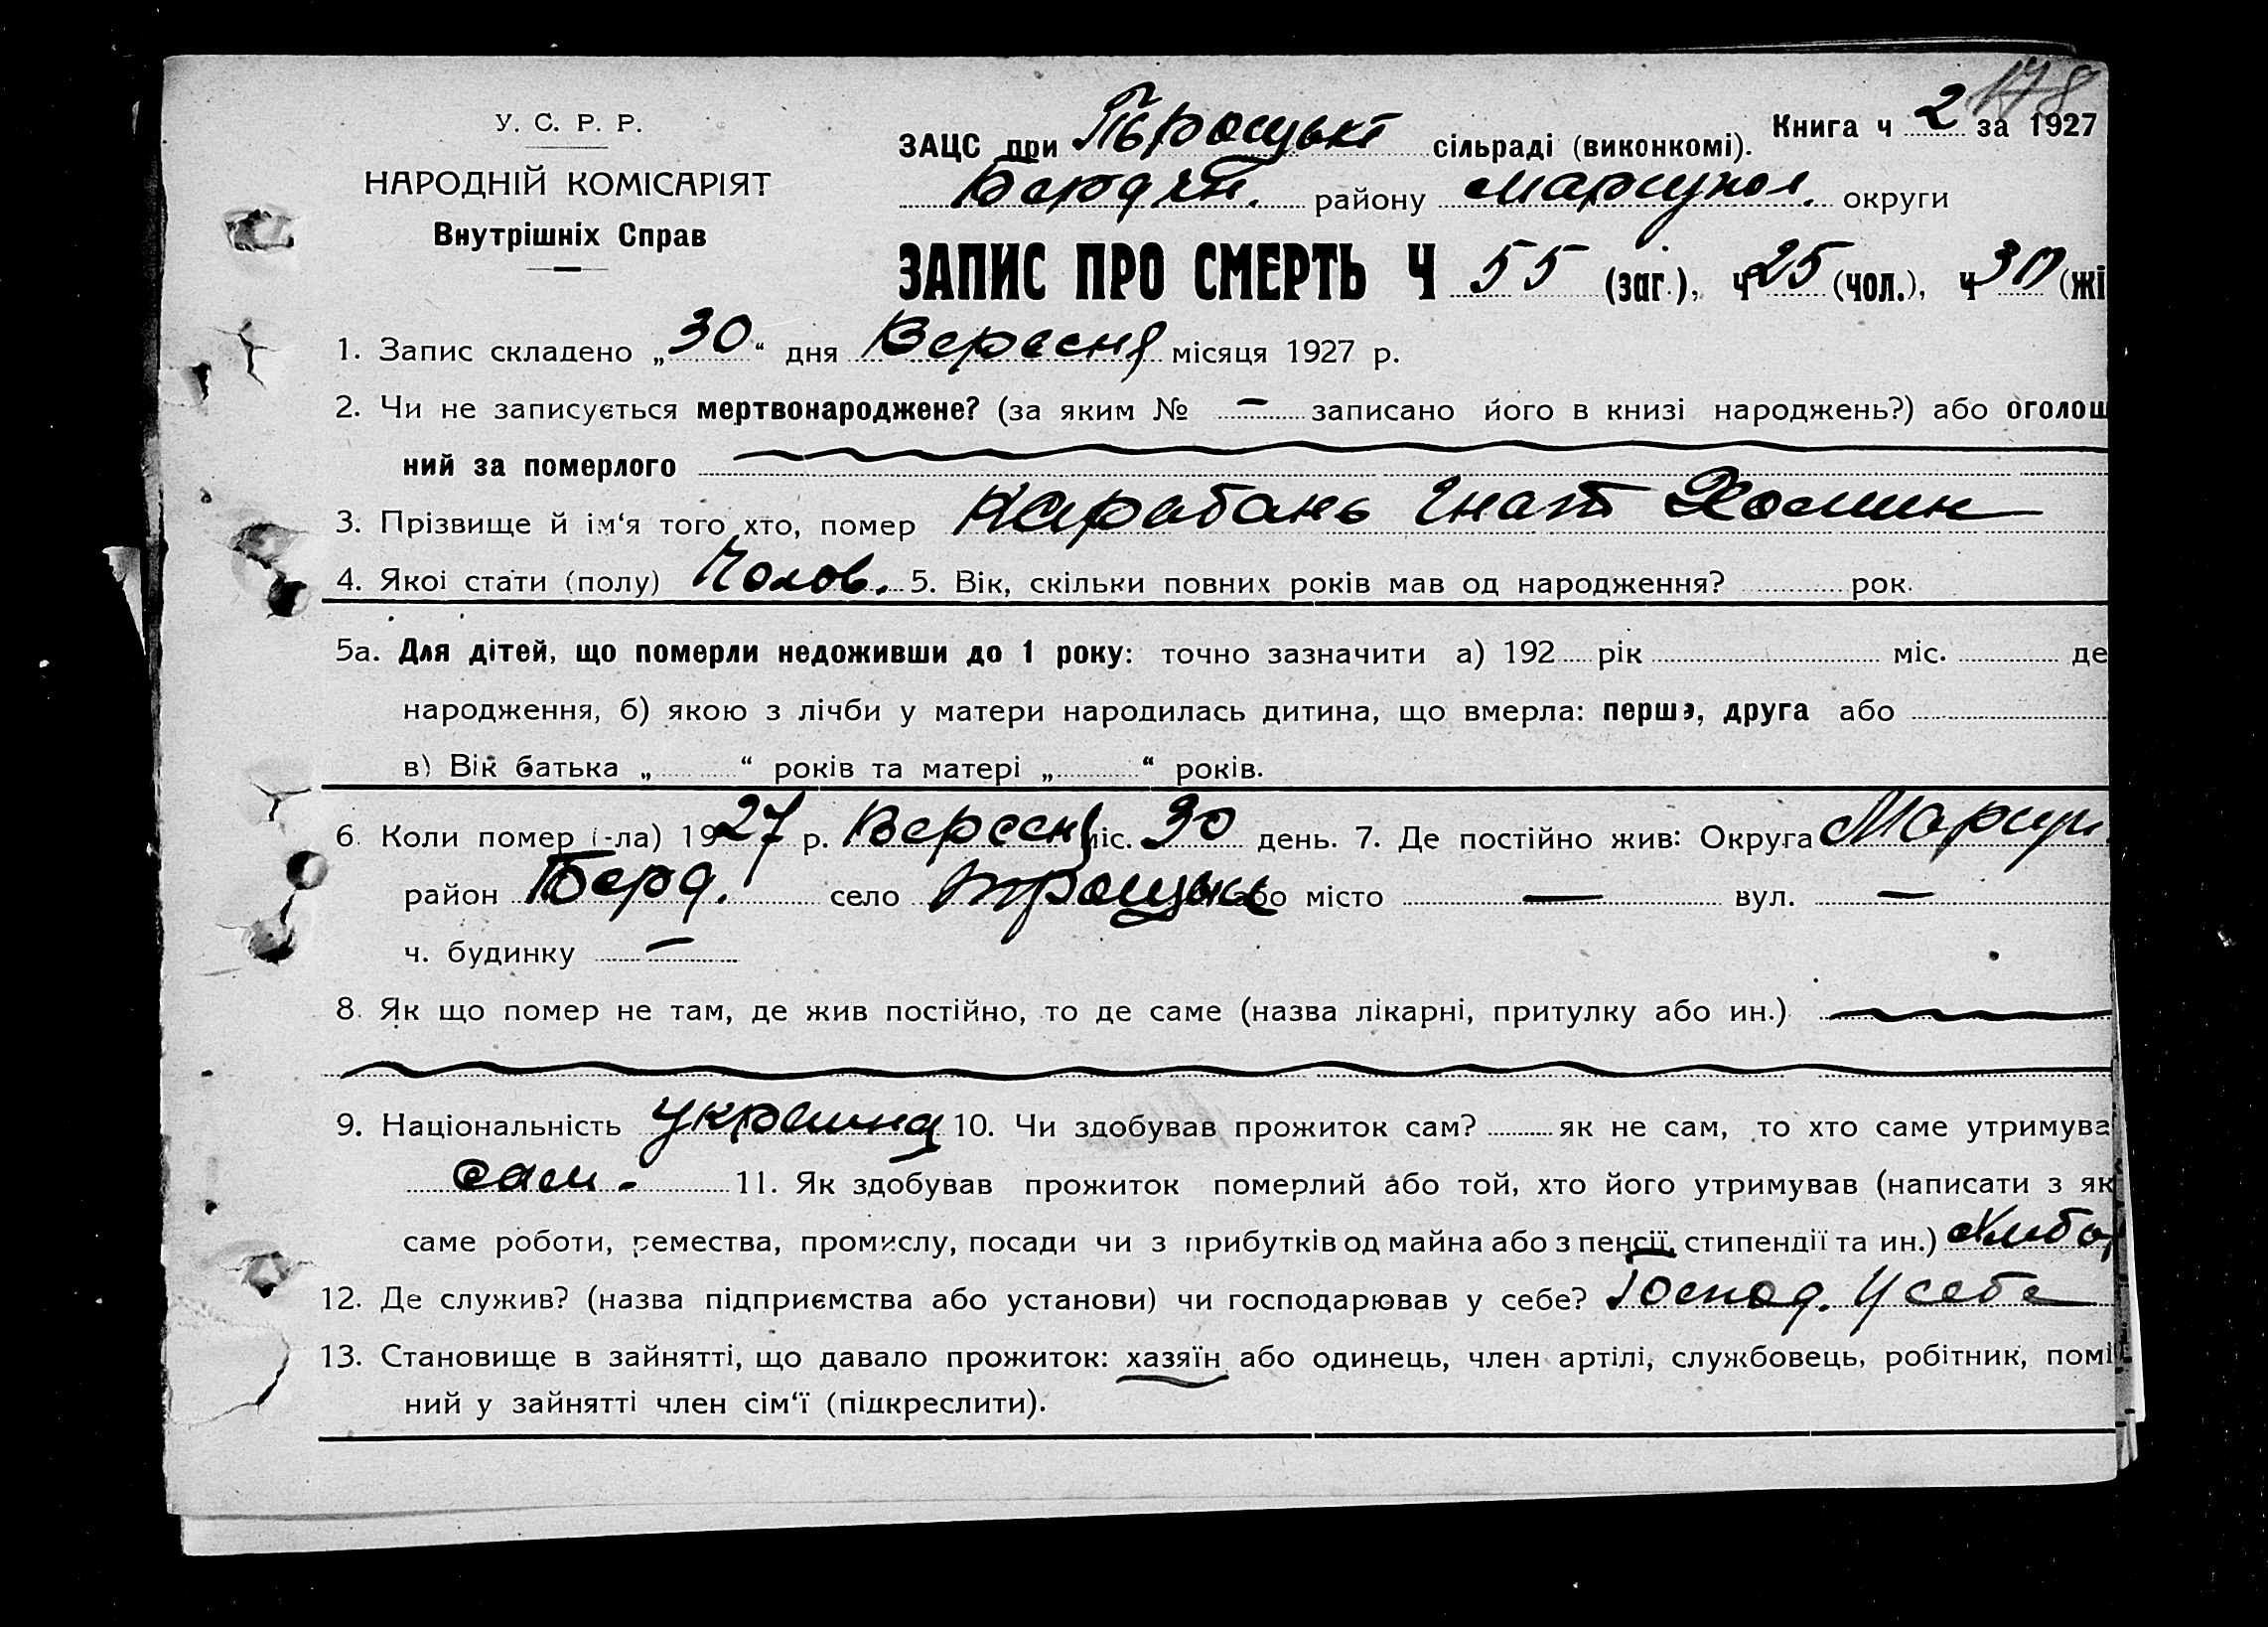 178
У. С. Р. Р.
НАРОДНІЙ КОМІСАРІЯТ
Внутрішніх Справ
Книга ч 2 за 1927
ЗАЦС при Троцькі сільраді (виконкомі).
Бердян. району Мариупол. округи
ЗАПИС ПРО СМЕРТЬ Ч 55 (заг.), ч 25 (чол.), ч 30 (жі
1. Запис складено „30“ дня Вересня місяця 1927 р.
2. Чи не записується мертвонароджене? (за яким № – записано його в книзі народжень?) або оголош
ний за померлого
3. Прізвище й ім‘я того хто, помер Карабань Гнат Хомин
4. Якоі стати (полу) Чолов. 5. Вік, скільки повних років мав од народження? рок.
5а. Для дітей, що померли недоживши до 1 року: точно зазначити а) 192 рік міс. де
народження, б) якою з лічби у матери народилась дитина, що вмерла: перша, друга або
в) Вік батька „ “ років та матері „ “ років.
6. Коли помер (-ла) 1927 р. Вересня міс. 30 день. 7. Де постійно жив: Округа Мариуп.
район Берд. село Троцьке або місто — вул. —
ч. будинку —
8. Як що помер не там, де жив постійно, то де саме (назва лікарні, притулку або ин.)
9. Національність 10. Чи здобував прожиток сам? як не сам, то хто саме утримува
сам. 11. Як здобував прожиток померлий або той, хто його утримував (написати з як
саме роботи, ремества, промислу, посади чи з прибутків од майна або з пенсії, стипендії та ин.)
12. Де служив? (назва підприємства або установи) чи господарював у себе? Господ. У себе
13. Становище в зайнятті, що давало прожиток: хазяїн або одинець, член артілі, службовець, робітник, помі
ний у зайнятті член сім‘ї (підкреслити).